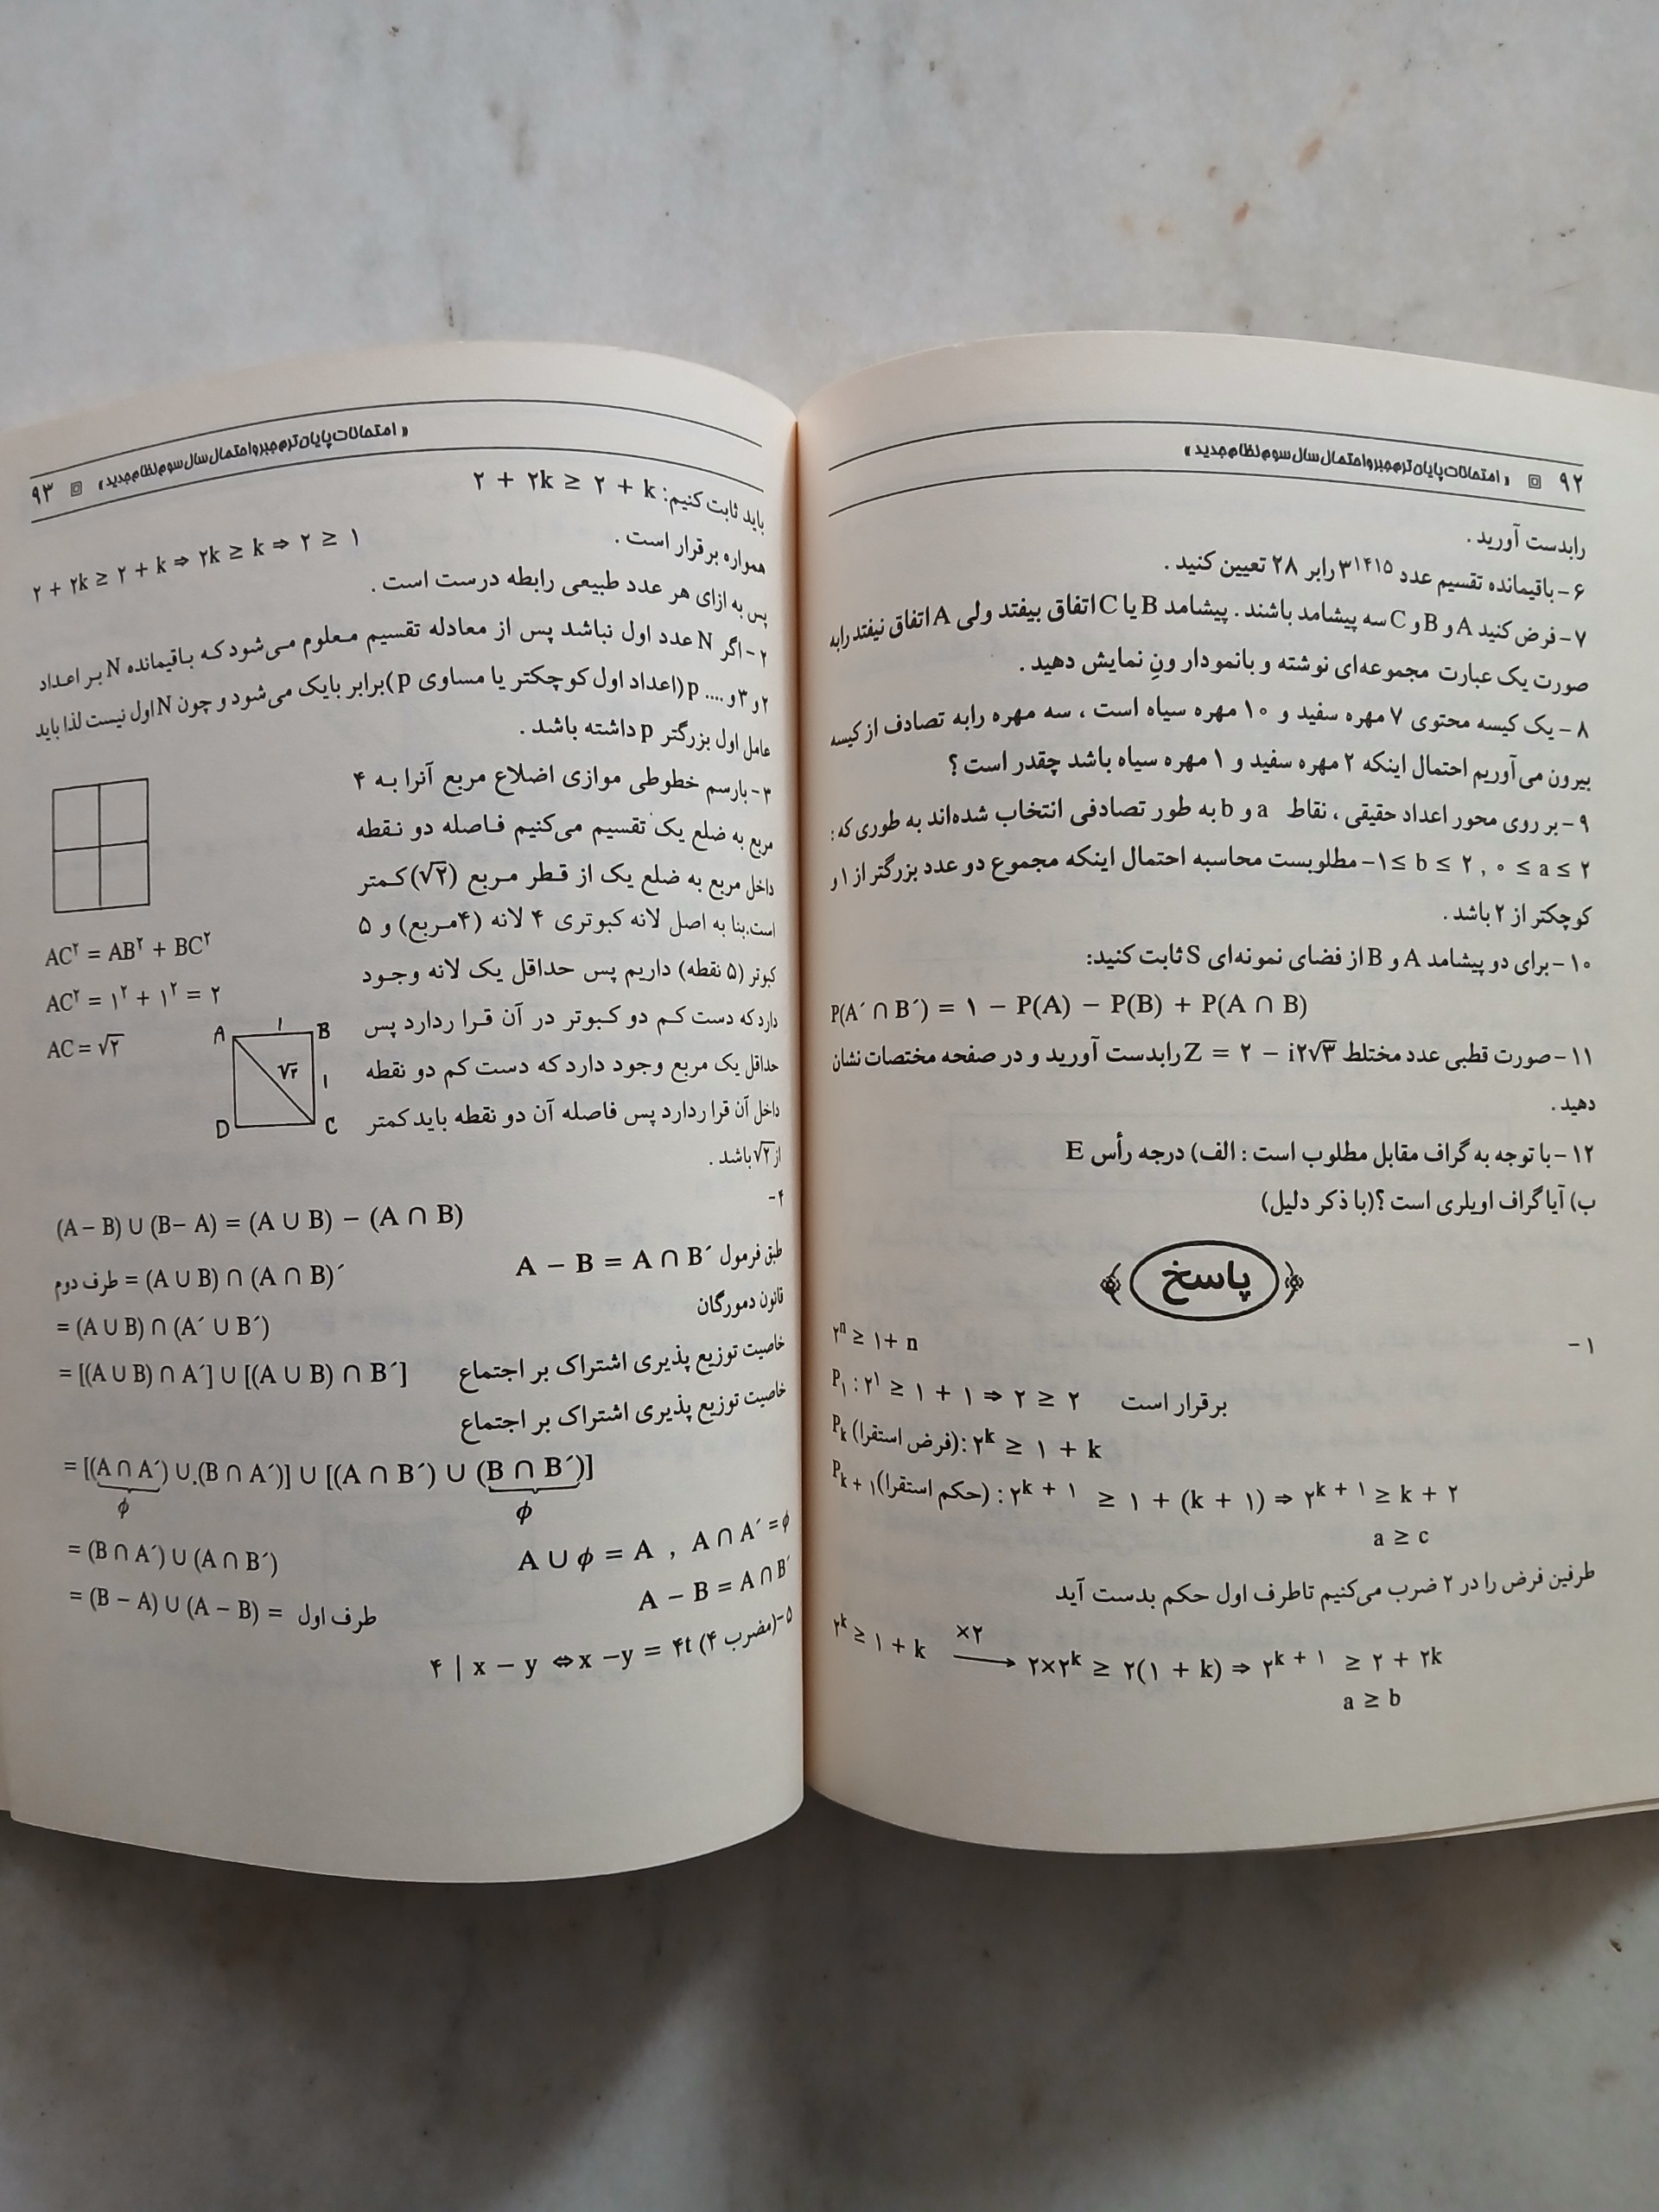 ۹۲ «امتحانات پایان ترم جبر و احتمال سال سوم نظام جدید»
رابدست آورید .
۶ – باقیمانده تقسیم عدد ۳^۱۴۱۵ رابر ۲۸ تعیین کنید .
۷ – فرض کنید A و B و C سه پیشامد باشند . پیشامد B یا C اتفاق بیفتد ولی A اتفاق نیفتد رابه
صورت یک عبارت مجموعه‌ای نوشته و بانمودار ونِ نمایش دهید .
۸ – یک کیسه محتوی ۷ مهره سفید و ۱۰ مهره سیاه است ، سه مهره رابه تصادف از کیسه
بیرون می‌آوریم احتمال اینکه ۲ مهره سفید و ۱ مهره سیاه باشد چقدر است ؟
۹ – بر روی محور اعداد حقیقی ، نقاط a و b به طور تصادفی انتخاب شده‌اند به طوری که :
−۱ ≤ b ≤ ۲ , ۰ ≤ a ≤ ۲ مطلوبست محاسبه احتمال اینکه مجموع دو عدد بزرگتر از ۱ و
کوچکتر از ۲ باشد .
۱۰ – برای دو پیشامد A و B از فضای نمونه‌ای S ثابت کنید:
P(A´ ∩ B´) = ۱ − P(A) − P(B) + P(A ∩ B)
۱۱ – صورت قطبی عدد مختلط Z = ۲ − i۲√۳ رابدست آورید و در صفحه مختصات نشان
دهید .
۱۲ – با توجه به گراف مقابل مطلوب است : الف) درجه رأس E
ب) آیا گراف اویلری است ؟(با ذکر دلیل)
پاسخ
۱ –
۲^n ≥ ۱ + n
P_۱ : ۲^۱ ≥ ۱ + ۱ ⇒ ۲ ≥ ۲ برقرار است
P_k (فرض استقرا): ۲^k ≥ ۱ + k
P_k + ۱ (حکم استقرا) : ۲^k + ۱ ≥ ۱ + (k + ۱) ⇒ ۲^k + ۱ ≥ k + ۲
a ≥ c
طرفین فرض را در ۲ ضرب می‌کنیم تاطرف اول حکم بدست آید
۲^k ≥ ۱ + k ×۲ → ۲×۲^k ≥ ۲(۱ + k) ⇒ ۲^k + ۱ ≥ ۲ + ۲k
a ≥ b
«امتحانات پایان ترم جبر و احتمال سال سوم نظام جدید» ۹۳
باید ثابت کنیم: ۲ + ۲k ≥ ۲ + k
همواره برقرار است .
۲ + ۲k ≥ ۲ + k ⇒ ۲k ≥ k ⇒ ۲ ≥ ۱
پس به ازای هر عدد طبیعی رابطه درست است .
۲ – اگر N عدد اول نباشد پس از معادله تقسیم معلوم می‌شود که باقیمانده N بر اعداد
۲ و ۳ و .... p (اعداد اول کوچکتر یا مساوی p) برابر بایک می‌شود و چون N اول نیست لذا باید
عامل اول بزرگتر p داشته باشد .
۳ – بارسم خطوطی موازی اضلاع مربع آنرا به ۴
مربع به ضلع یک تقسیم می‌کنیم فاصله دو نقطه
داخل مربع به ضلع یک از قطر مربع (√۲) کمتر
است.بنا به اصل لانه کبوتری ۴ لانه (۴مربع) و ۵
کبوتر (۵ نقطه) داریم پس حداقل یک لانه وجود
دارد که دست کم دو کبوتر در آن قرا ردارد پس
حداقل یک مربع وجود دارد که دست کم دو نقطه
داخل آن قرا ردارد پس فاصله آن دو نقطه باید کمتر
از √۲ باشد .
AC^۲ = AB^۲ + BC^۲
AC^۲ = ۱^۲ + ۱^۲ = ۲
AC = √۲
A ۱ B
√۲ ۱
D C
۴ –
(A − B) ∪ (B − A) = (A ∪ B) − (A ∩ B)
طبق فرمول A − B = A ∩ B´
طرف دوم = (A ∪ B) ∩ (A ∩ B)´
قانون دمورگان
= (A ∪ B) ∩ (A´ ∪ B´)
خاصیت توزیع پذیری اشتراک بر اجتماع
= [(A ∪ B) ∩ A´] ∪ [(A ∪ B) ∩ B´]
خاصیت توزیع پذیری اشتراک بر اجتماع
= [(A ∩ A´) ∪ .(B ∩ A´)] ∪ [(A ∩ B´) ∪ (B ∩ B´)]
ϕ ϕ
= (B ∩ A´) ∪ (A ∩ B´) A ∪ ϕ = A , A ∩ A´ = ϕ
= (B − A) ∪ (A − B) = طرف اول A − B = A ∩ B´
۵ – (مضرب ۴) ۴ | x − y ⇔ x − y = ۴t